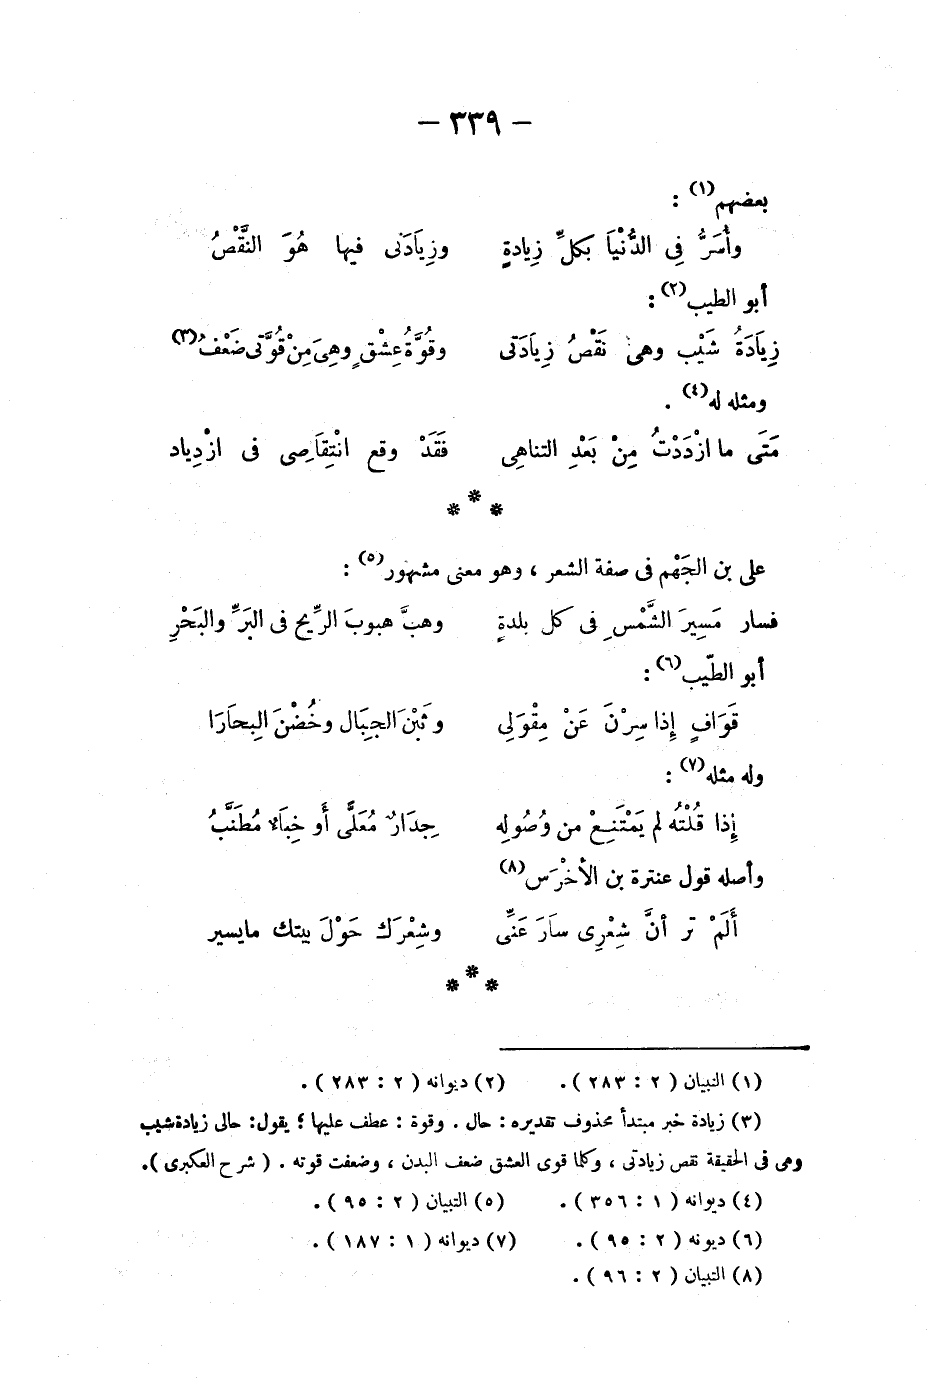 — ٣٣٩ —
بعضهم(١) :
وأُسَرُّ فِى الدُّنْيَا بكلِّ زِيادةٍ وزِيَادَتى فيها هُوَ النَّقْصُ
أبو الطيب(٢) :
زِيَادَةُ شَيْبٍ وهىَ نَقْصُ زِيادَتى وقُوَّةُ عِشْقٍ وهِىَ مِنْ قُوَّتى ضَعْفُ(٣)
ومثله له(٤) .
مَتَى ما ازْدَدْتُ مِنْ بَعْدِ التناهِى فَقَدْ وقع انْتِقَاصِى فى ازْدِياد
* * *
على بن الجَهْم فى صفة الشعر ، وهو معنى مشهور(٥) :
فسار مَسِيرَ الشَّمْسِ فى كل بلدةٍ وهبَّ هبوبَ الرِّيح فى البَرِّ والبَحْرِ
أبو الطّيب(٦) :
قَوَافٍ إِذا سِرْنَ عَنْ مِقْوَلِى وَثَبْنَ الجِبَال وخُضْنَ البِحَارَا
وله مثله(٧) :
إِذا قُلْتُه لم يَمْتَنِعْ من وُصُولِه جِدَارٌ مُعَلًّى أَو خِبَاءٌ مُطَنَّبُ
وأصله قول عنترة بن الأخْرَس(٨)
أَلَمْ تر أنَّ شِعْرِى سارَ عَنِّى وشِعْرَك حَوْلَ بيتك مايسير
* * *
(١) التبيان ( ٢ : ٢٨٣ ) . (٢) ديوانه ( ٢ : ٢٨٣ ) .
(٣) زيادة خبر مبتدأ محذوف تقديره : حال . وقوة : عطف عليها ؛ يقول: حالى زيادة شيب
وهى فى الحقيقة نقص زيادتى ، وكلما قوى العشق ضعف البدن ، وضعفت قوته . ( شرح العكبرى ).
(٤) ديوانه ( ١ : ٣٥٦ ) . (٥) التبيان ( ٢ : ٩٥ ) .
(٦) ديونه ( ٢ : ٩٥ ) . (٧) ديوانه ( ١ : ١٨٧ ) .
(٨) التبيان ( ٢ : ٩٦ ) .